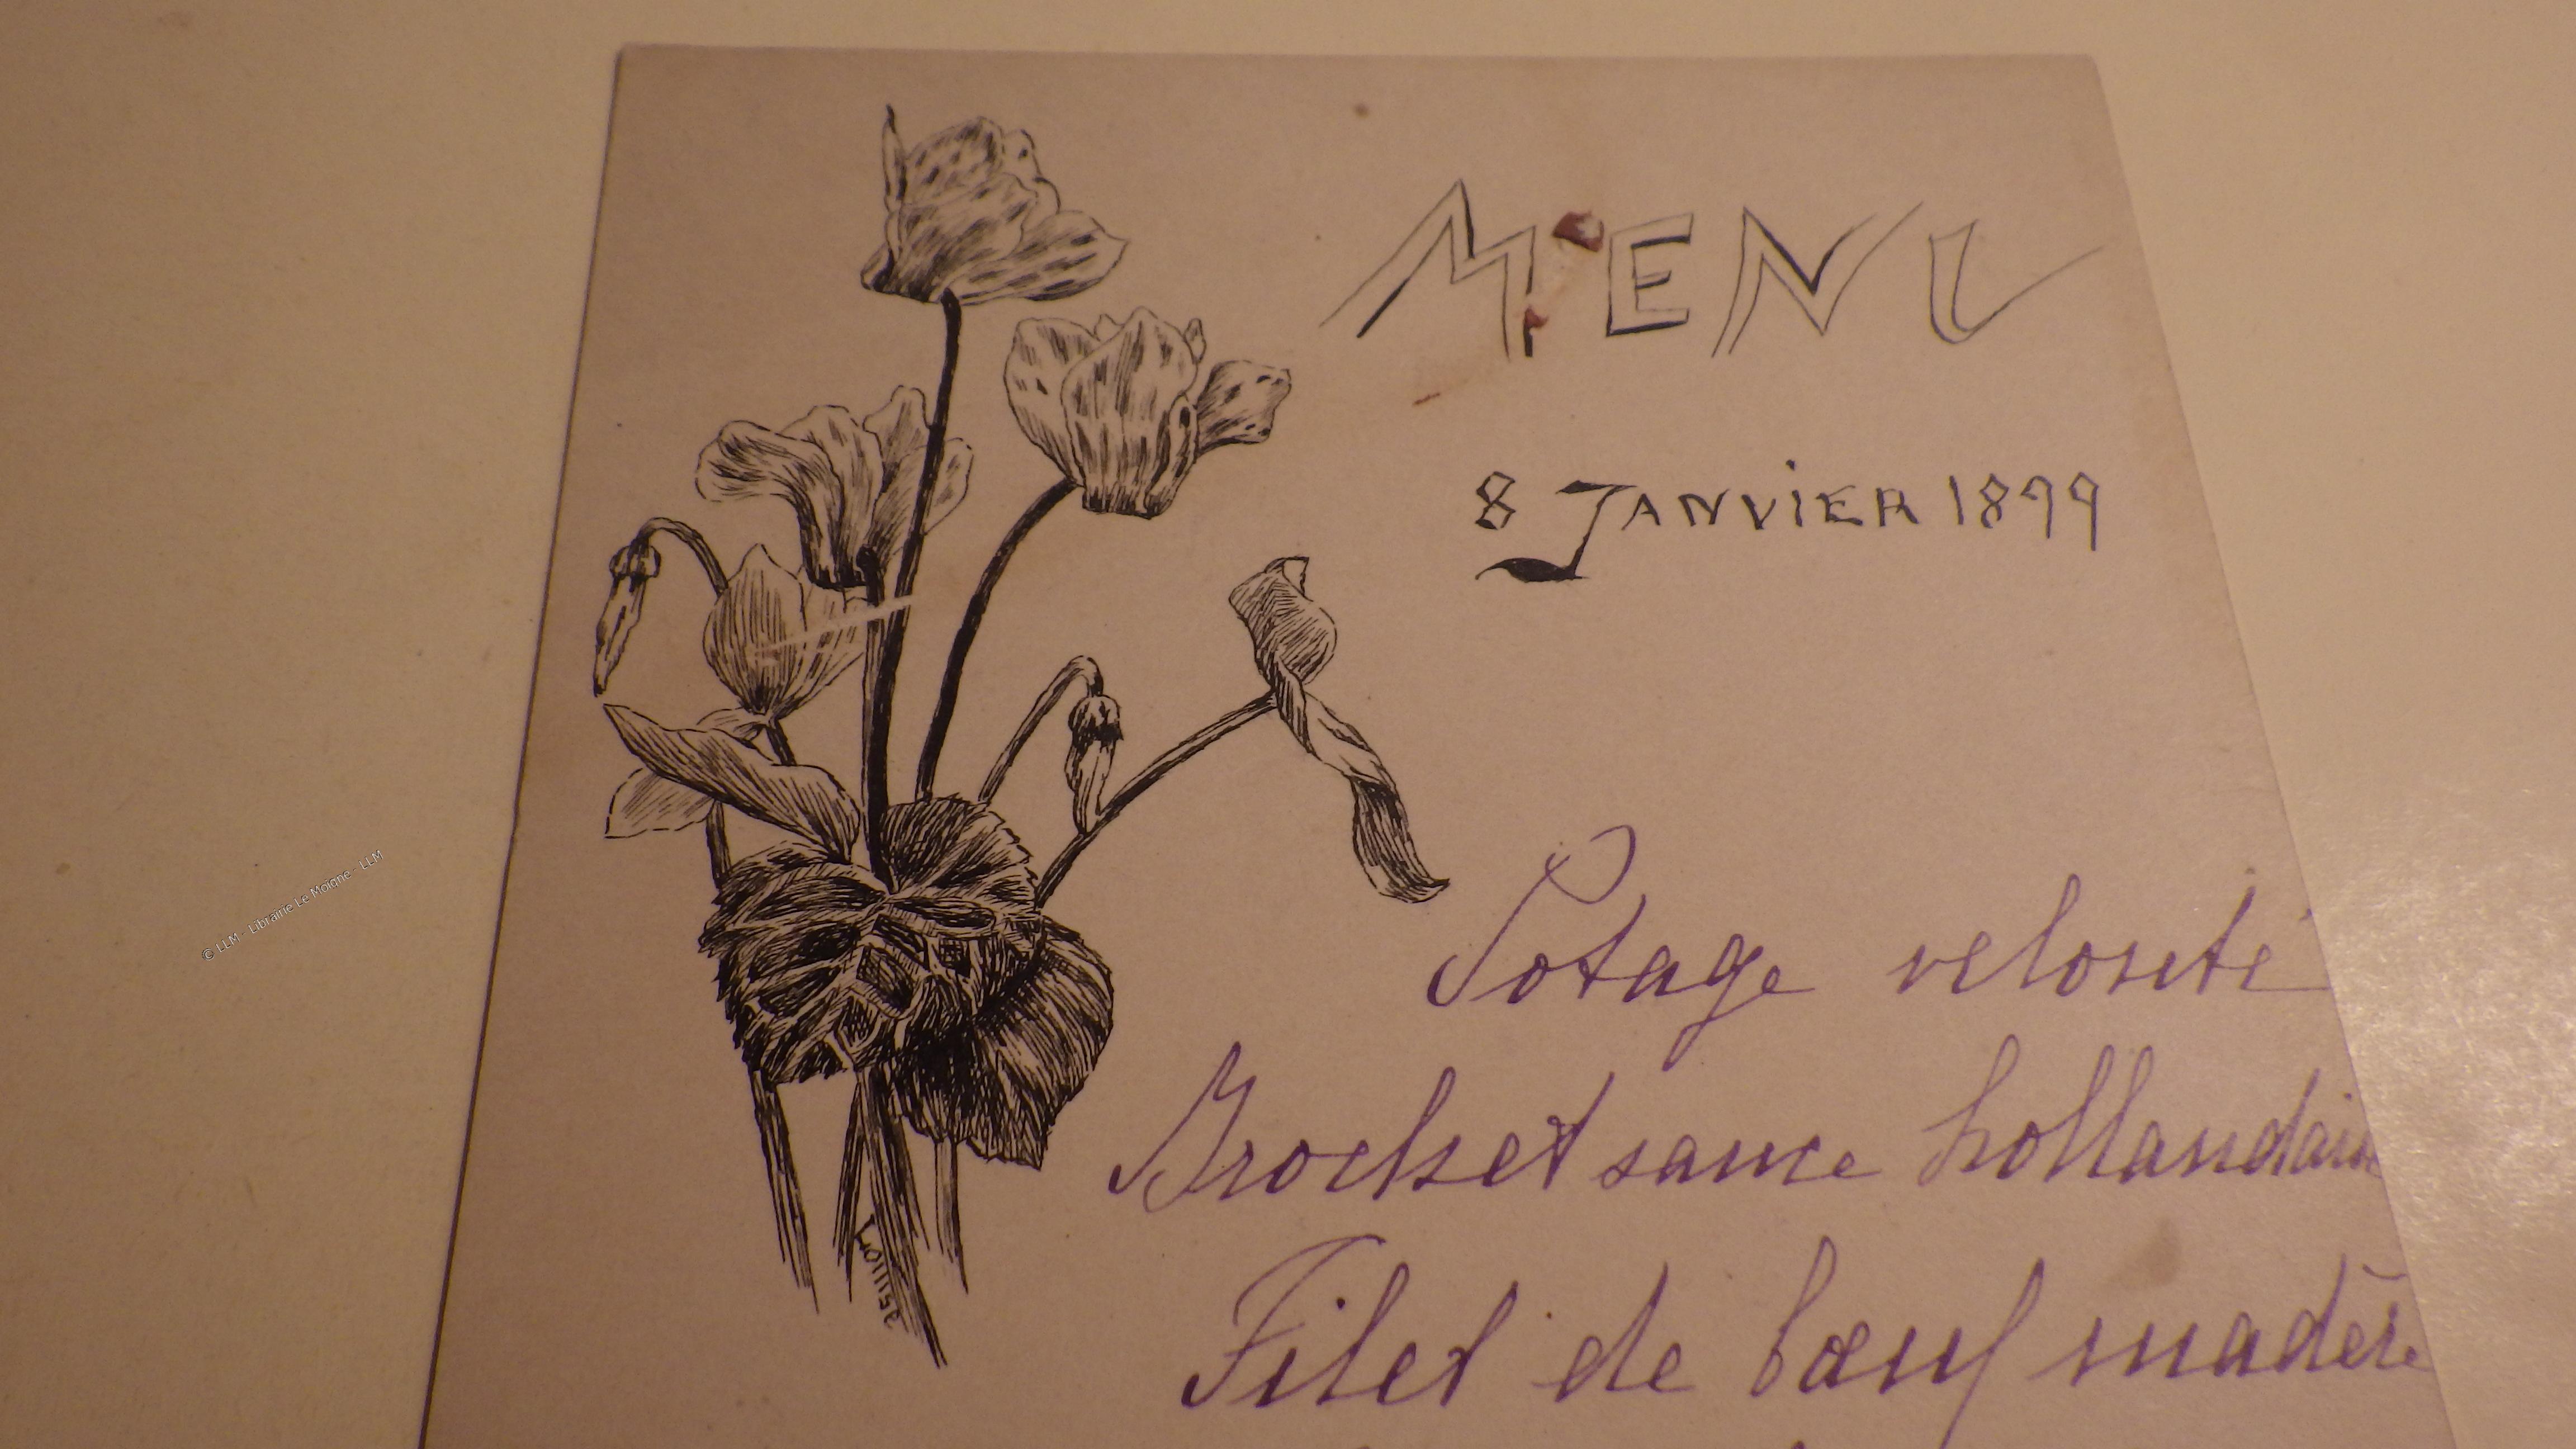 MENU
8 JANVIER 1899
Potage velouté
Brochet sauce hollandaise
Filet de bœuf madère
© LLM - Librairie Le Moigne - LLM